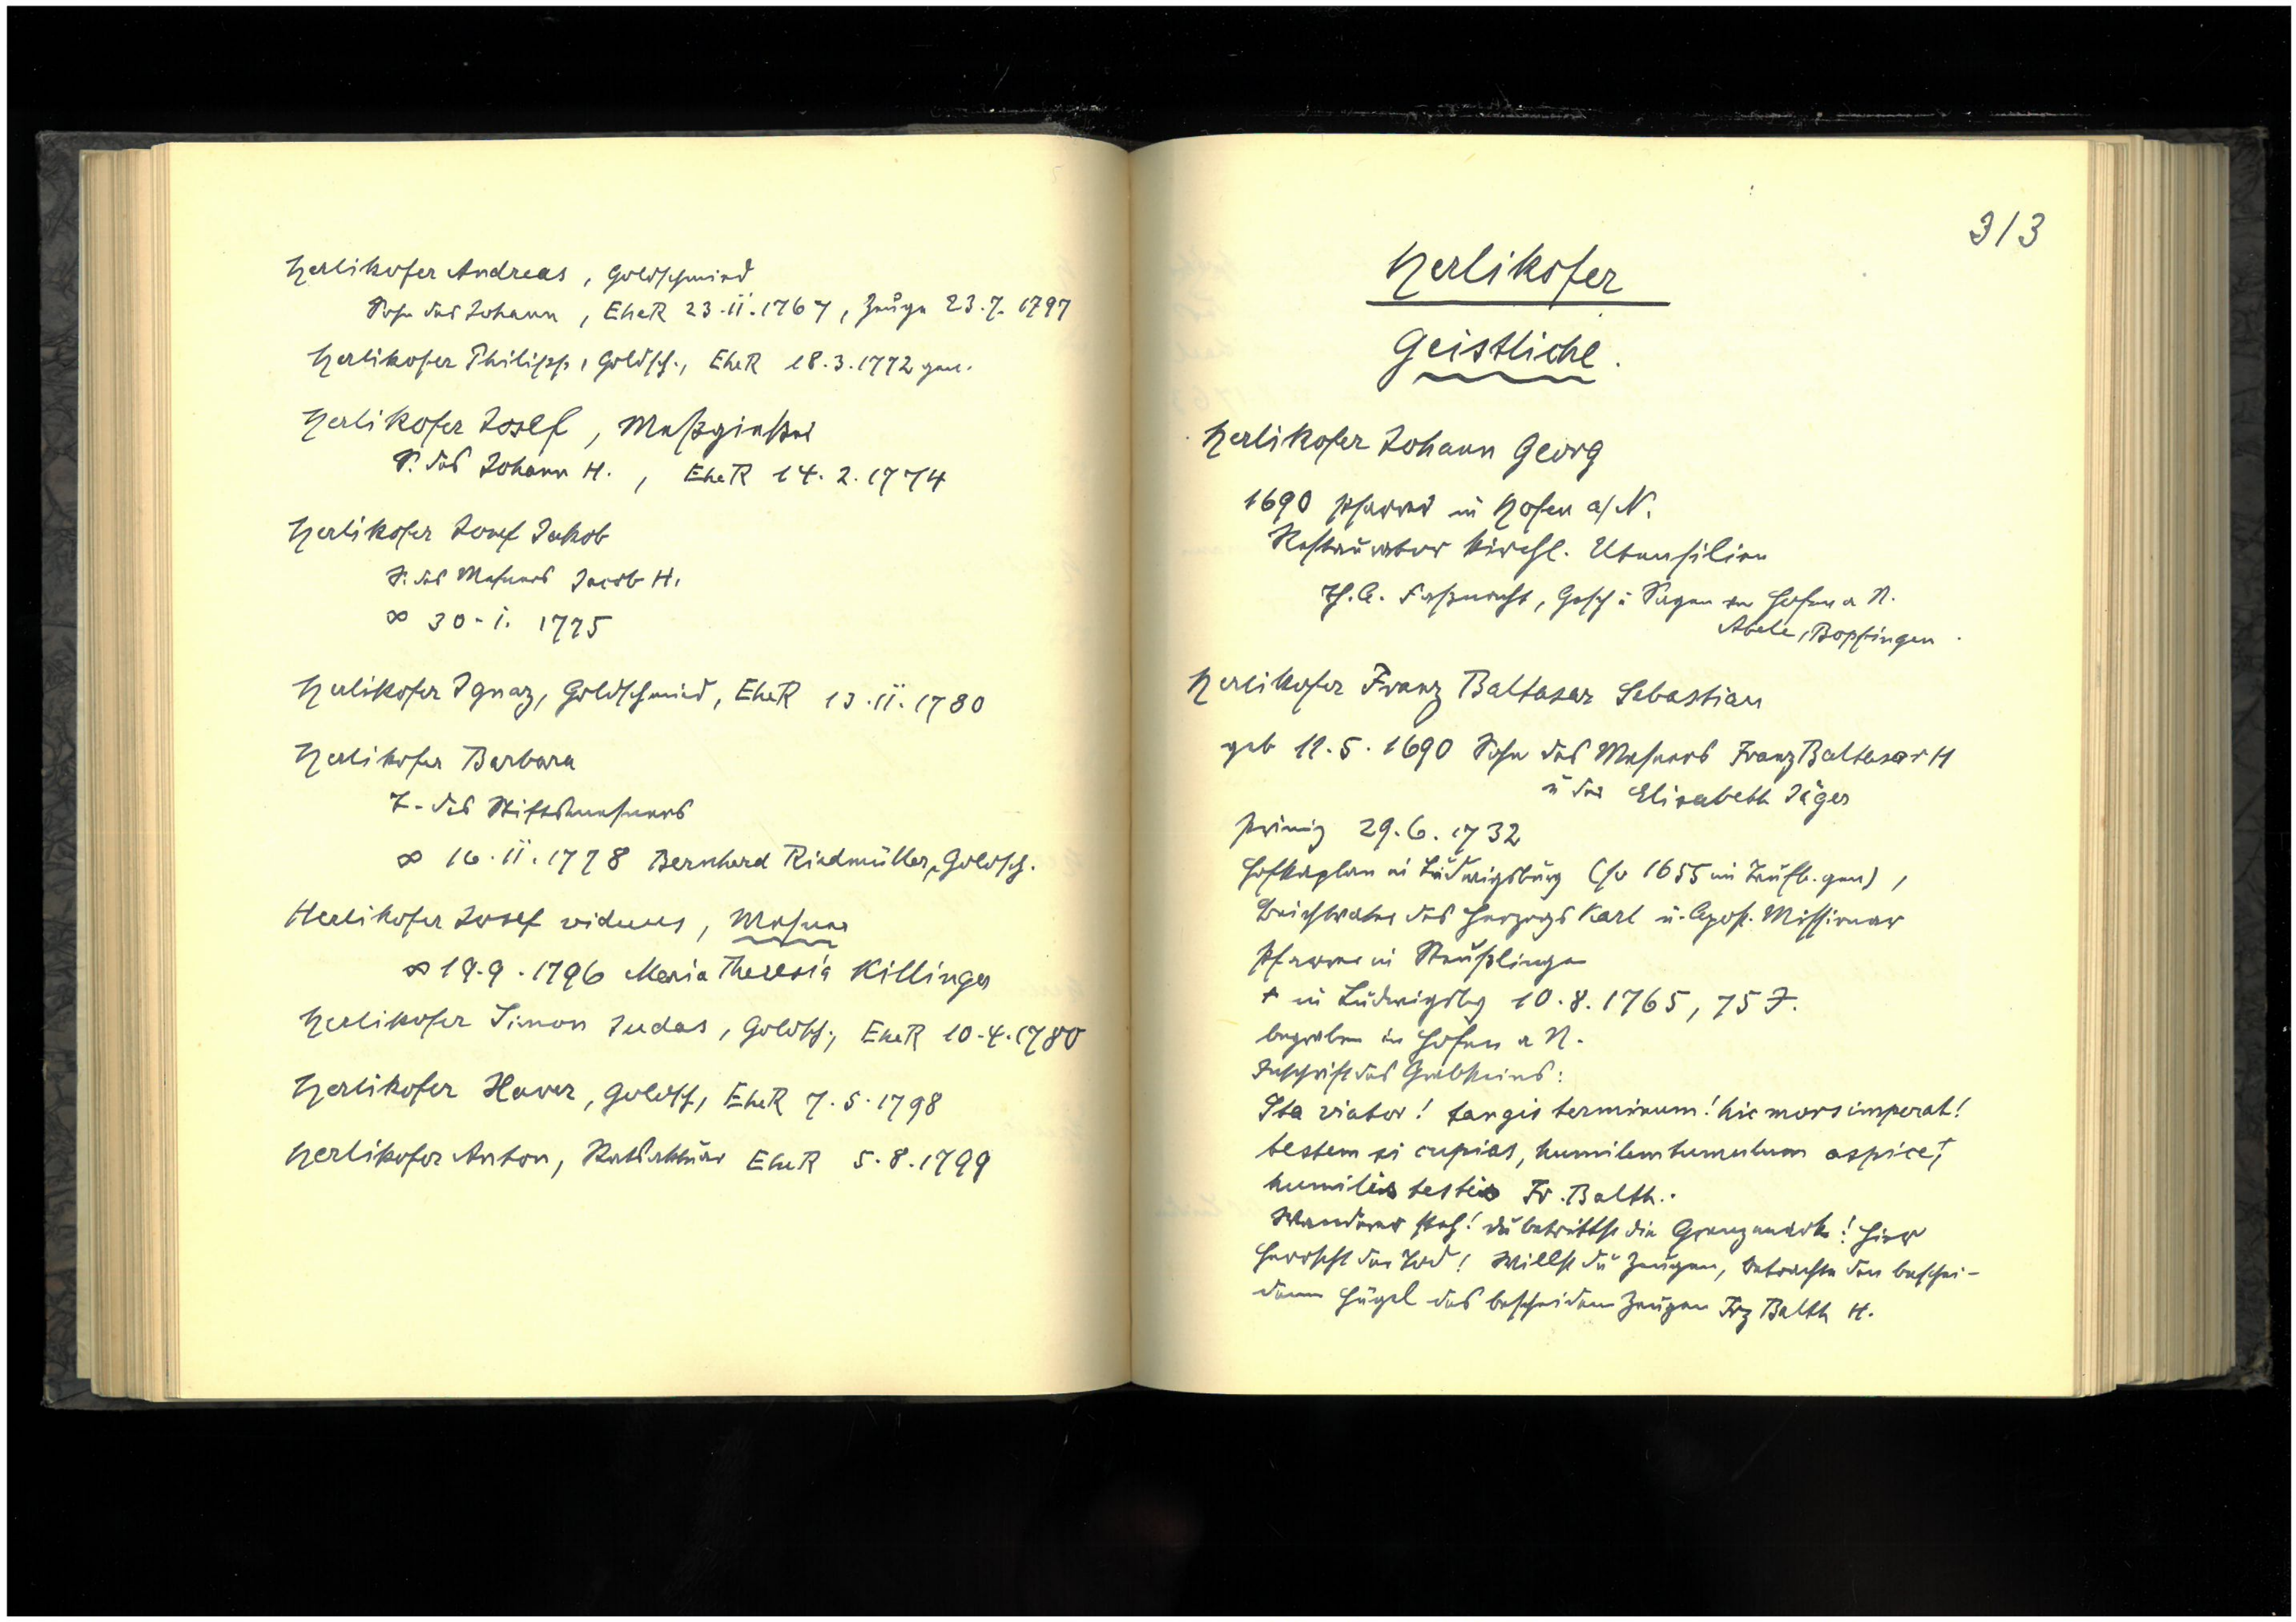 Herlikofer Andreas, Goldschmied
Sohn des Johann, EheR 23.II.1767, Zeuge 23.7.1797
Herlikofer Philipp, Goldsch., EheR 18.3.1772 gen.
Herlikofer Josef, Meßgießer
S. des Johann H., EheR 14.2.1774
Herlikofer Josef Jakob
S. des Mesners Jacob H.
∞ 30.I.1775
Herlikofer Ignaz, Goldschmied, EheR 13.II.1780
Herlikofer Barbara
T. des Stiftsmesners
∞ 16.II.1778 Bernhard Riedmüller, Goldsch.
Herlikofer Josef viduus, Mesner
∞ 19.9.1796 Maria Theresia Killinger
Herlikofer Simon Judas, Goldsch., EheR 10.4.1780
Herlikofer Xaver, Goldsch, EheR 7.5.1798
Herlikofer Anton, EheR 5.8.1799
313
Herlikofer
Geistliche.
Herlikofer Johann Georg
1690 Pfarrer in Hofen a/N.
Restaurator kirchl. Utensilien
Th. A. Faßnacht, Gesch u Sagen Hofen a N.
Abele, Bopfingen
Herlikofer Franz Baltasar Sebastian
geb 11.5.1690 Sohn des Mesners Franz Baltasar H
u der Elisabeth Jäger
Primiz 29.6.1732
Hofkaplan in Ludwigsburg (so 1655 im Taufb. gen),
Beichtvater des Herzogs Karl u. Apost. Missionar
Pfarrer in Steußlingen
† in Ludwigsbg 10.8.1765, 75 J.
begraben in Hofen a N.
Inschrift des Grabsteins:
Sta viator! tangis terminum! hic mors imperat!
testem si cupias, humilem tumulum aspice,
humilis testis Fr. Balth..
Wanderer steh! du betrittst die Grenzmark! Hier
herrscht der Tod! Willst du Zeugen, betrachte den beschei-
denen Hügel des bescheidenen Zeugen Frz Balth H.